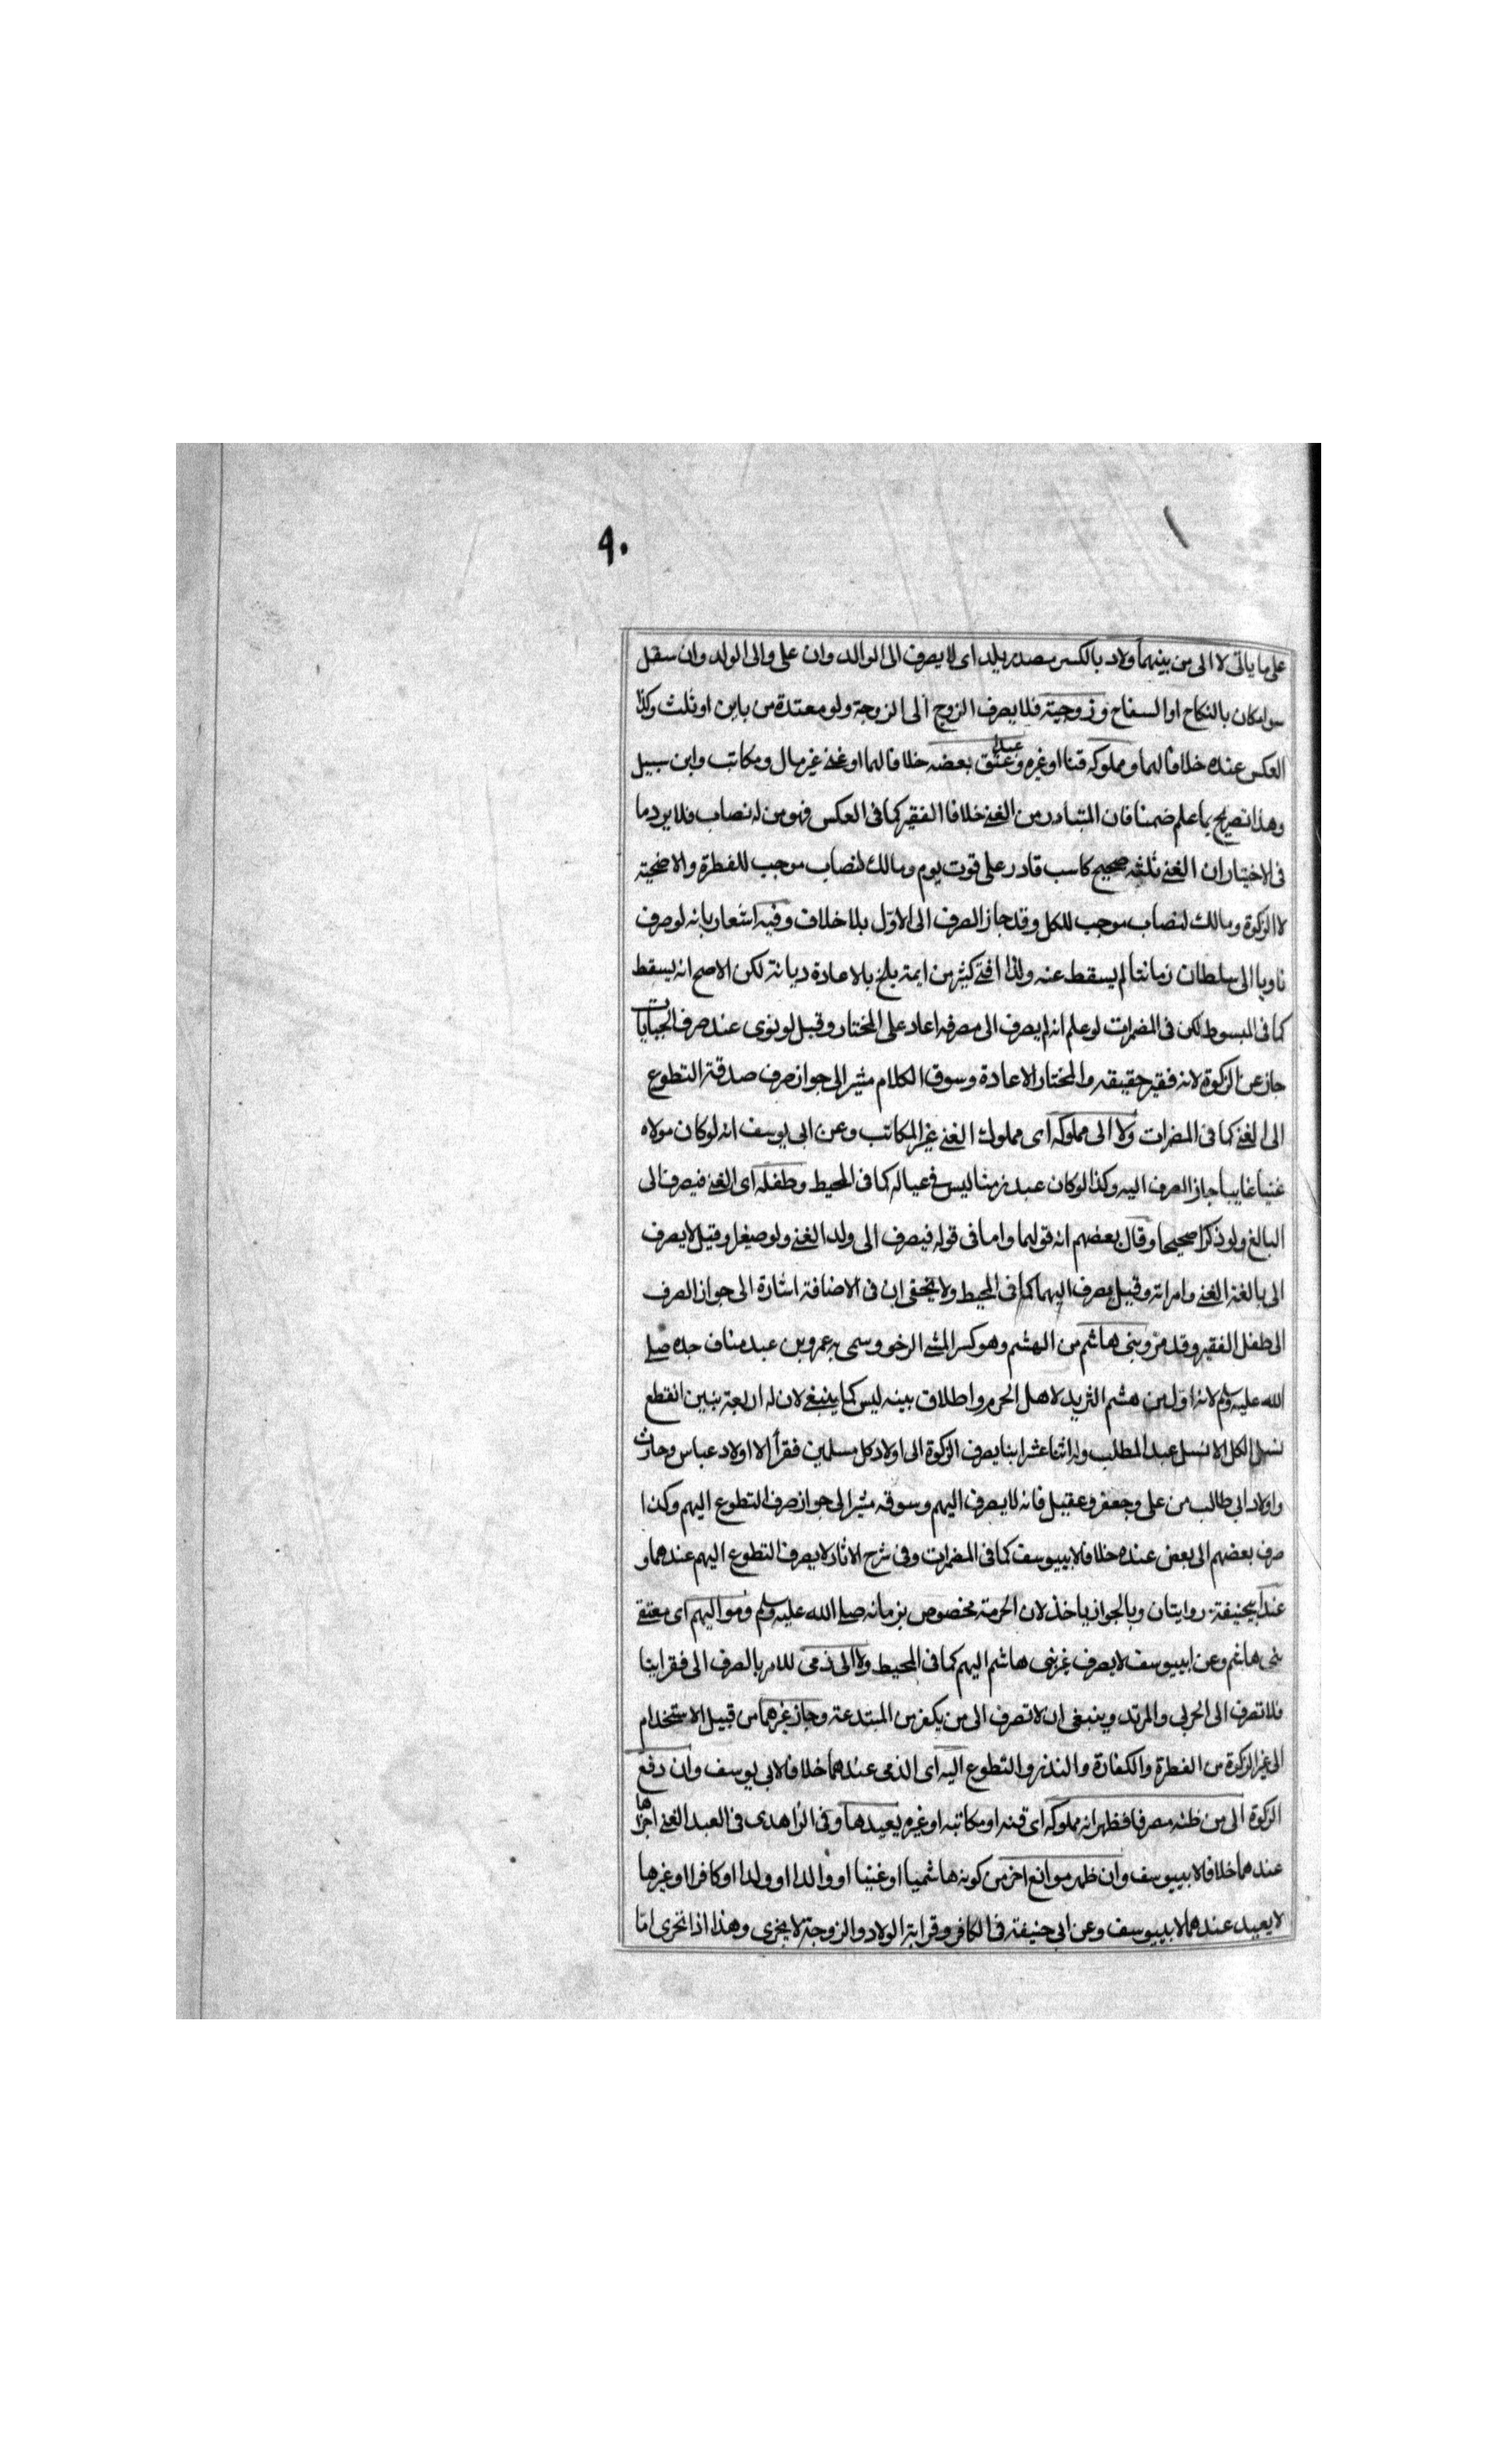 ٩٠
على ما ياتى لا الى من بينهما ولاد بالكسر مصدر يلد اى لا يصرف الى الوالد وان على والى الولد وان سفل
سواء كان بالنكاح او السفاح وزوجية فلا يصرف الزوج الى الزوجة ولو معتدة من باين او ثلث وكذا
العكس عنده خلافا لهما ومملوكه قنا او غيره وعبد عتق بعضه خلافا لهما او غنى غير مال ومكاتب وابن سبيل
وهذا تصريح بما علم ضمنا فان المتبادر من الغنى خلافا الفقير كما فى العكس فهو من له نصاب فلا يرد ما
فى الاختيار ان الغنى ثلثه صحيح كاسب قادر على قوت يوم ومالك لنصاب موجب للفطرة والاضحية
لا الزكوة ومالك لنصاب موجب للكل وقد جاز الصرف الى الاول بلا خلاف وفيه اشعار بانه لو صرف
ناويا الى سلطان زماننا لم يسقط عنه ولذا افتى كثير من ايمة بلخ بالاعادة ديانة لكن الاصح انه يسقط
كما فى المبسوط لكن فى المضمرات لو علم انه لم يصرف الى مصرفه اعاد على المختار وقيل لو نوى عند صرف الجبايات
جاز عن الزكوة لانه فقير حقيقه والمختار الاعادة وسوق الكلام مشير الى جواز صرف صدقة التطوع
الى الغنى كما فى المضمرات ولا الى مملوكه اى مملوك الغنى غير المكاتب وعن ابى يوسف انه لو كان مولاه
غنيا غايبا جاز الصرف اليه وكذا لو كان عبد زمنا ليس فى عياله كما فى المحيط وطفله اى الغنى فيصرف الى
البالغ ولو ذكرا صحيحا وقال بعضهم انه قولهما واما فى قوله فيصرف الى ولد الغنى ولو صيغل وقيل لا يصرف
الى بالغة الغنى وامراته وقيل يصرف اليهما كما فى المحيط ولا يخفى ان فى الاضافة اشارة الى جواز الصرف
الى طفل الفقير وقد مر وبنى هاشم من الهشم وهو كسر الشئ الرخو وسمى به عمرو بن عبد مناف جده صلى
الله عليه وسلم لانه اول من هشم الثريد لاهل الحرم واطلاق بينه ليس كما ينبغى لان له اربعة بنين انقطع
نسل الكل الا نسل عبد المطلب وله اثنا عشر ابنا يصرف الزكوة الى اولاد كل مسلمين فقرأ الا اولاد عباس وحارث
واولاد ابى طالب من على وجعفر وعقيل فانه لا يصرف اليهم وسوقه مشير الى جواز صرف التطوع اليهم وكذا
صرف بعضهم الى بعض عنده خلافا لابييوسف كما فى المضمرات وفى شرح الاثار لا يصرف التطوع اليهم عندهما و
عند ابيحنيفة روايتان وبالجواز ياخذ لان الحرمة مخصوص بزمانه صلى الله عليه وسلم ومواليهم اى معتقى
بنى هاشم وعن ابييوسف لا يصرف غير بنى هاشم اليهم كما فى المحيط ولا الى ذمى للامر بالصرف الى فقراينا
فلا تصرف الى الحربى والمرتد وينبغى ان لا تصرف الى من يكفر من المبتدعة وجاز غيرهما من قبيل الاستخدام
الى غير الزكوة من الفطرة والكفارة والنذر والتطوع اليه اى الذمى عندهما خلافا لابى يوسف وان دفع
الزكوة الى من ظنه مصرفا فظهر انه مملوكه اى قنه او مكاتبه او غيره يعيدها وفى الزاهدى فى العبد الغنى اجزاها
عندهما خلافا لابييوسف وان ظهر موانع اخر من كونه هاشميا او غنيا او والدا او ولدا او كافرا او غيرها
لا يعيد عندهما لابييوسف وعن ابى حنيفة فى الكافر وقرابة الولاد والزوجة لا يجزى وهذا اذا تحرى اما